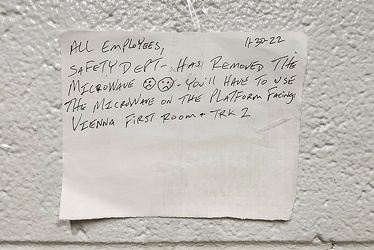 ALL EMPLOYEES, 11-30-22
SAFETY DEPT- HAS REMOVED THE
MICROWAVE ☹☹ - YOU'LL HAVE TO USE
THE MICROWAVE ON THE PLATFORM FACING
VIENNA FIRST ROOM + TRK 2